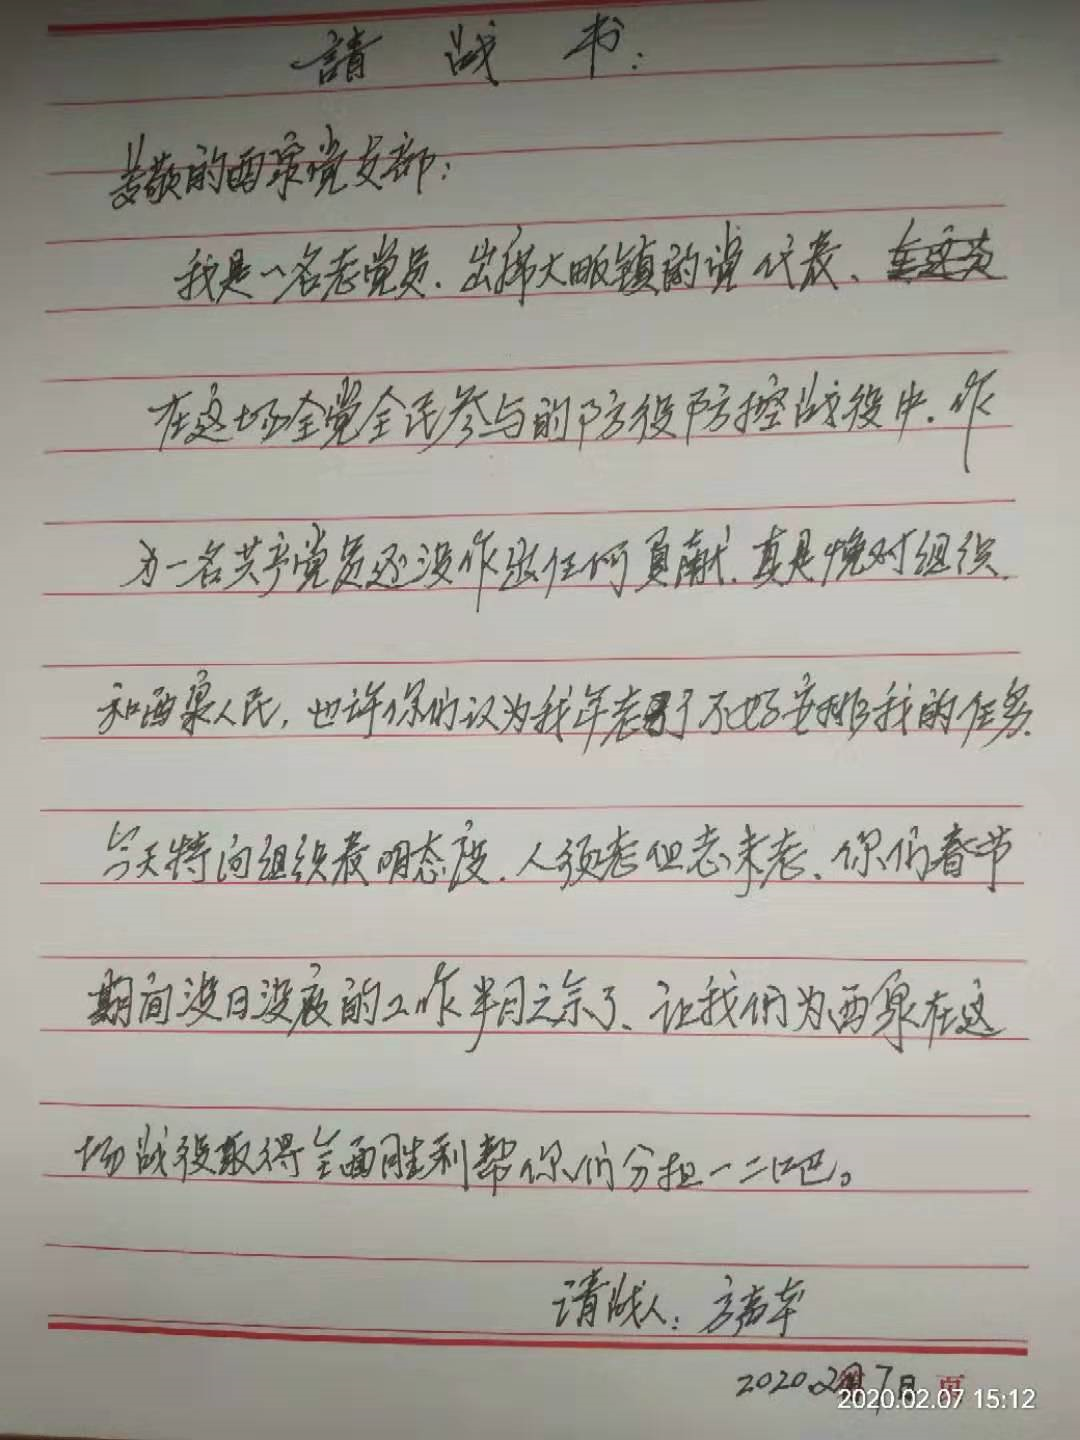 請战书：
尊敬的西泉党支部：
我是一名老党员、出席大畈镇的党代表、
在这场全党全民参与的防役防控战役中，作
为一名共产党员还没作出任何贡献、真是愧对组织
和西泉人民，也许你们认为我年老了不好安排我的任务．
今天特向组织表明态度、人须老但志未老、你们春节
期间没日没夜的工作半月之余了、让我们为西泉在这
场战役取得全面胜利帮你们分担一二吧。
请战人：方
2020.2月7日
页
2020.02.07 15:12